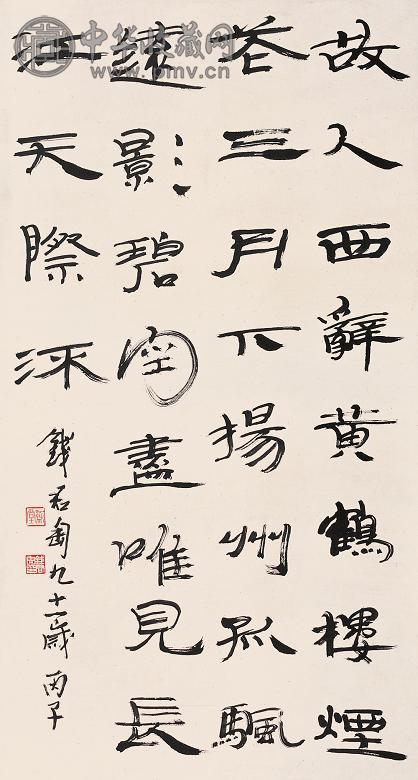 中华收藏网
www.pmv.cn
故人西辭黄鶴樓煙
花三月下揚州孤颿
遠影碧空盡唯見長
江天際流
錢君匋九十一歲 丙子